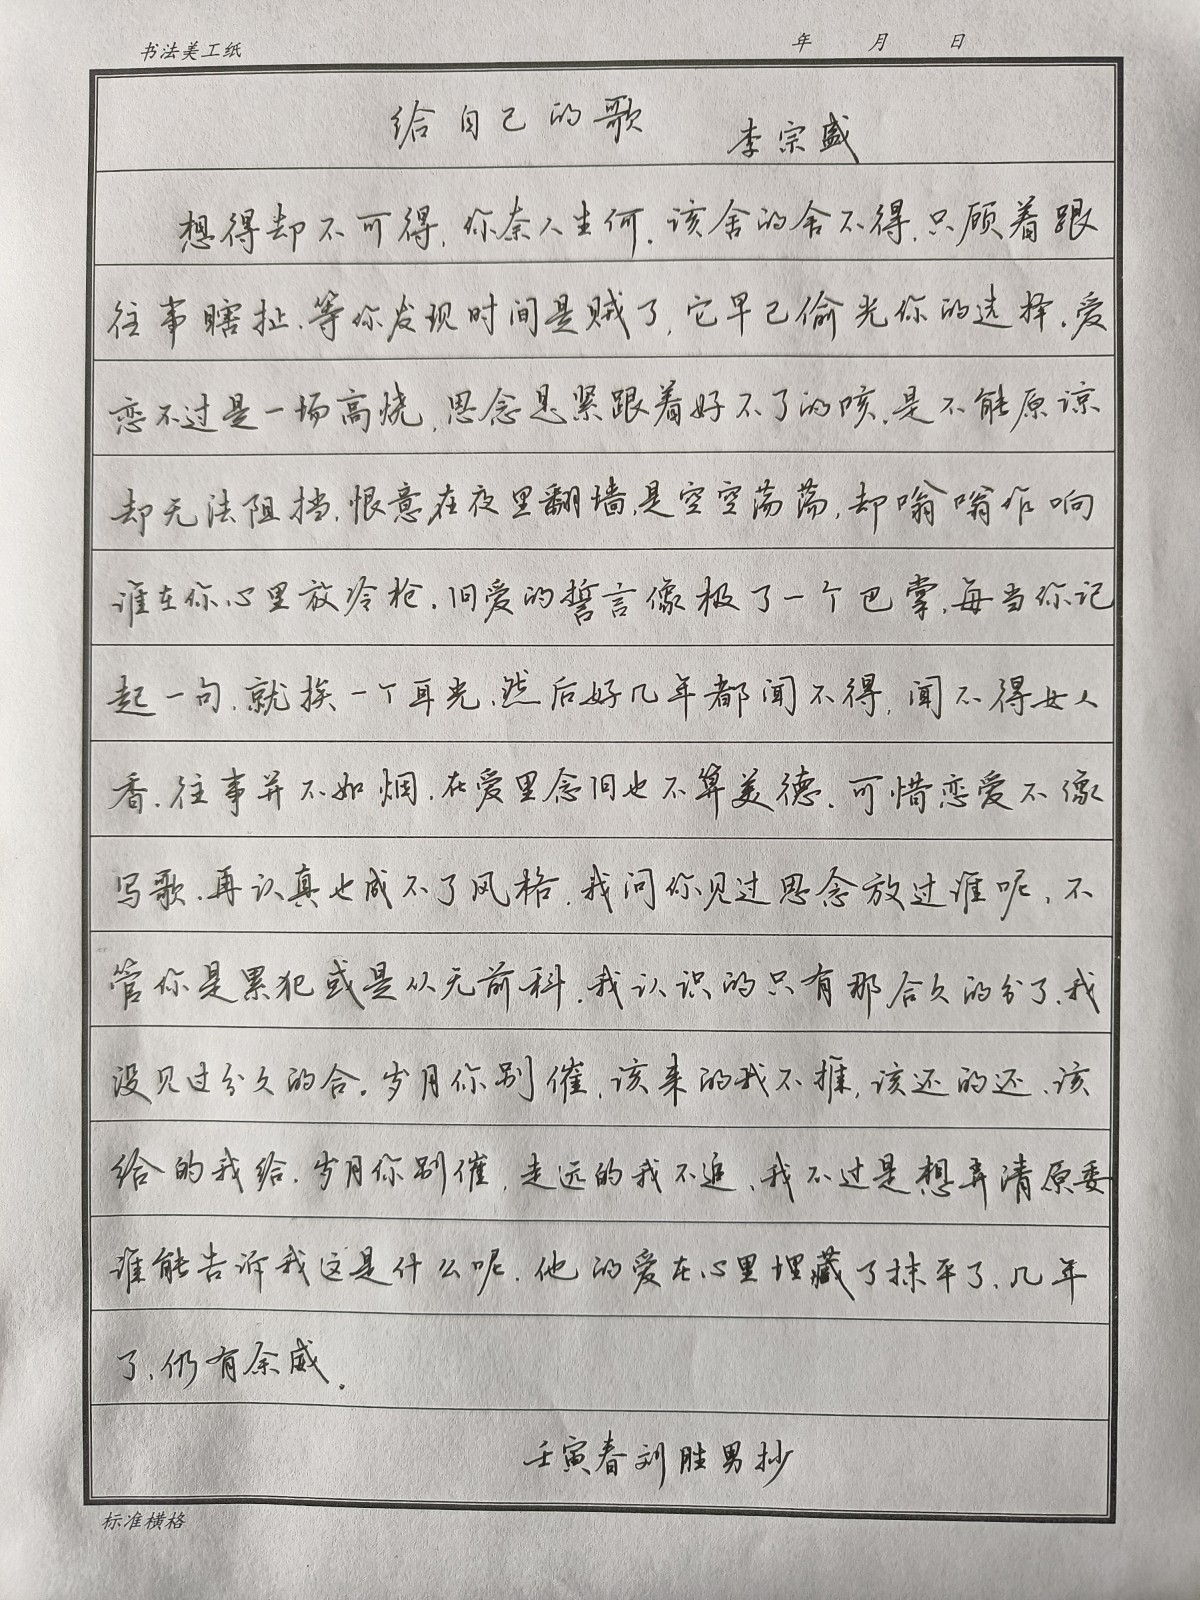 书法美工纸 年 月 日
给自己的歌 李宗盛
想得却不可得,你奈人生何。该舍的舍不得,只顾着跟
往事瞎扯、等你发现时间是贼了,它早已偷光你的选择。爱
恋不过是一场高烧,思念是紧跟着好不了的咳。是不能原谅
却无法阻挡,恨意在夜里翻墙,是空空荡荡,却嗡嗡作响
谁在你心里放冷枪。旧爱的誓言像极了一个巴掌,每当你记
起一句、就挨一个耳光、然后好几年都闻不得,闻不得女人
香。往事并不如烟,在爱里念旧也不算美德。可惜恋爱不像
写歌、再认真也成不了风格,我问你见过思念放过谁呢、不
管你是累犯或是从无前科。我认识的只有那合久的分了、我
没见过分久的合。岁月你别催,该来的我不推,该还的还、该
给的我给。岁月你别催,走远的我不追、我不过是想弄清原委
谁能告诉我这是什么呢,他的爱在心里埋藏了抹平了、几年
了、仍有余威。
壬寅春刘胜男抄
标准横格